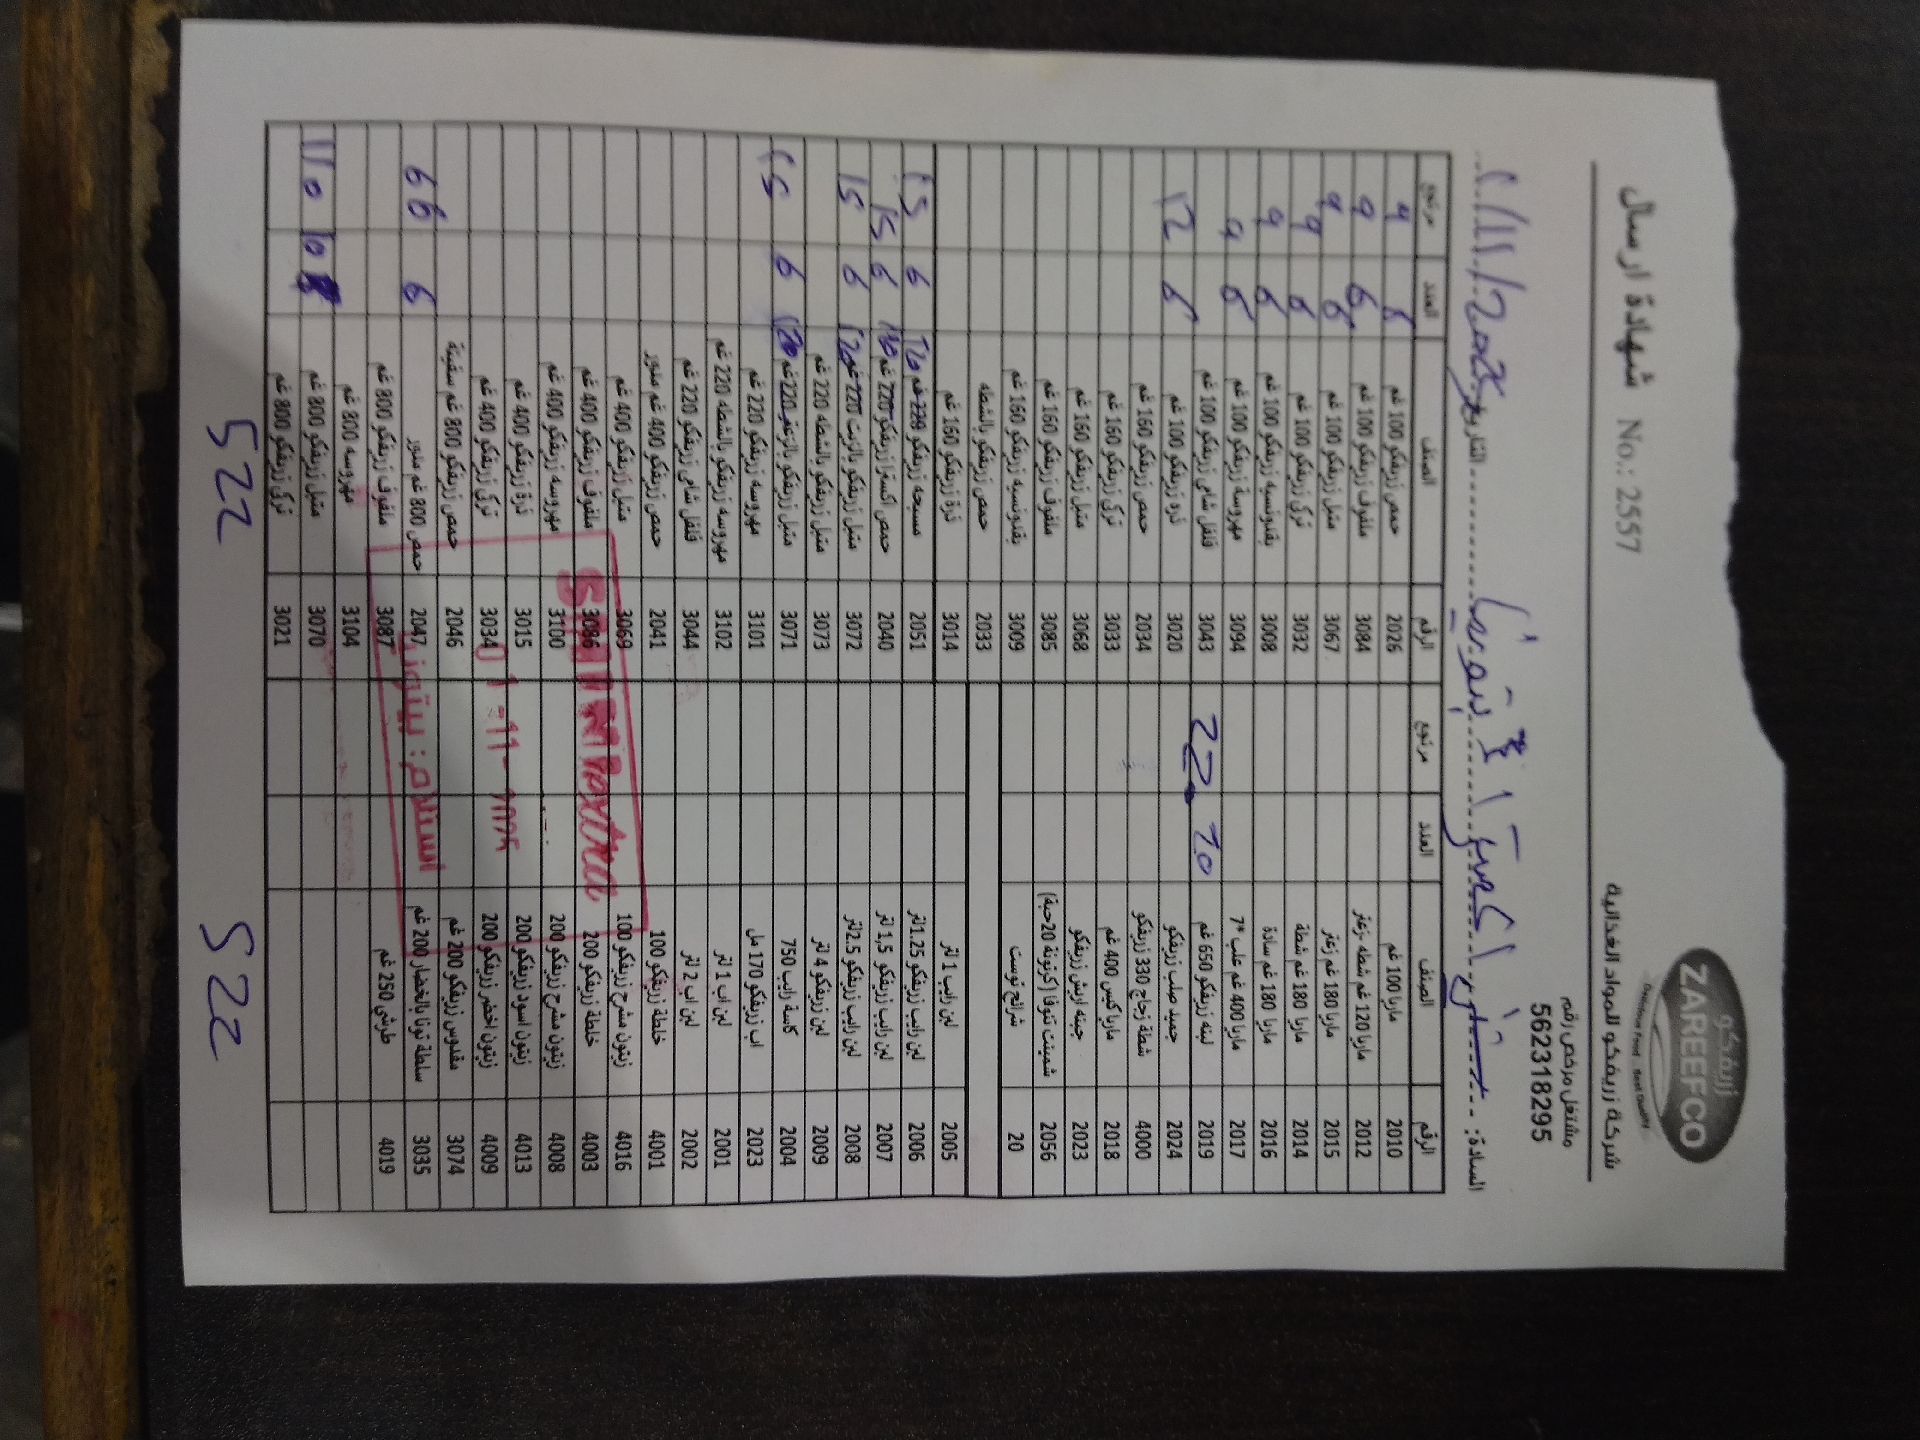 زريفكو
ZAREEFCO
Delicious Food Best Quality
شركة زريفكو للمواد الغذائية
مشتغل مرخص رقم
562318295
شهادة ارسال No.: 2557
السادة: التاريخ
الرقم الصنف العدد مرتجع الرقم الصنف العدد مرتجع
2010 ماريا 100 غم 2026 حمص زريفكو 100 غم 6 9
2012 ماريا 120 غم شطه -زعتر 3084 ملفوف زريفكو 100 غم 6 9
2015 ماريا 180 غم زعتر 3067 متبل زريفكو 100 غم 6 9
2014 ماريا 180 غم شطة 3032 تركي زريفكو 100 غم 6 9
2016 ماريا 180 غم سادة 3008 بقدونسية زريفكو 100 غم 6 9
2017 ماريا 400 غم علب *7 3094 مهروسة زريفكو 100 غم 6 9
2019 لبنه زريفكو 650 غم 10 22 3043 فلفل شامي زريفكو 100 غم
2024 جميد صلب زريفكو 3020 ذره زريفكو 100 غم 6 12
4000 شطة زجاج 330 زريفكو 2034 حمص زريفكو 160 غم
2018 ماريا كيس 400 غم 3033 تركي زريفكو 160 غم
2023 جبنه اريش زريفكو 3068 متبل زريفكو 160 غم
2056 شمينت تنوفا (كرتونة 20حبة) 3085 ملفوف زريفكو 160 غم
20 شرائح توست 3009 بقدونسيه زريفكو 160 غم
2033 حمص زريفكو بالشطه
2005 لبن رايب 1 لتر 3014 ذرة زريفكو 160 غم
2006 لبن رايب زريفكو 1.25لتر 2051 مسبحه زريفكو 220 غم 6 15
2007 لبن رايب زريفكو 1,5 لتر 2040 حمص اكسترا زريفكو 220 غم 6 15
2008 لبن رايب زريفكو 2.5لتر 3072 متبل زريفكو بالزيت 220 غم 6 15
2009 لبن زريفكو 4 لتر 3073 متبل زريفكو بالشطه 220 غم
2004 كاسة رايب 750 3071 متبل زريفكو بالزعتر 220 غم 6 15
2023 اب زريفكو 170 مل 3101 مهروسه زريفكو 220 غم
2001 لبن اب 1 لتر 3102 مهروسه زريفكو بالشطه 220 غم
2002 لبن اب 2 لتر 3044 فلفل شامي زريفكو 220 غم
4001 خلطة زريفكو 100 2041 حمص زريفكو 400 غم مدور
4016 زيتون مشرح زريفكو 100 3069 متبل زريفكو 400 غم
4003 خلطة زريفكو 200 3086 ملفوف زريفكو 400 غم
4008 زيتون مشرح زريفكو 200 3100 مهروسه زريفكو 400 غم
4013 زيتون اسود زريفكو 200 3015 ذرة زريفكو 400 غم
4009 زيتون اخضر زريفكو 200 3034 تركي زريفكو 400 غم
3074 مقدوس زريفكو 200 غم 2046 حمص زريفكو 800 غم سفينة
3035 سلطة تونا بالخضار 200 غم 2047 حمص 800 غم مدور 6 66
4019 طرشي 250 غم 3087 ملفوف زريفكو 800 غم
3104 مهروسه 800 غم
3070 متبل زريفكو 800 غم 10 110
3021 تركي زريفكو 800 غم
extra
استلام: بيتونيا
522 522